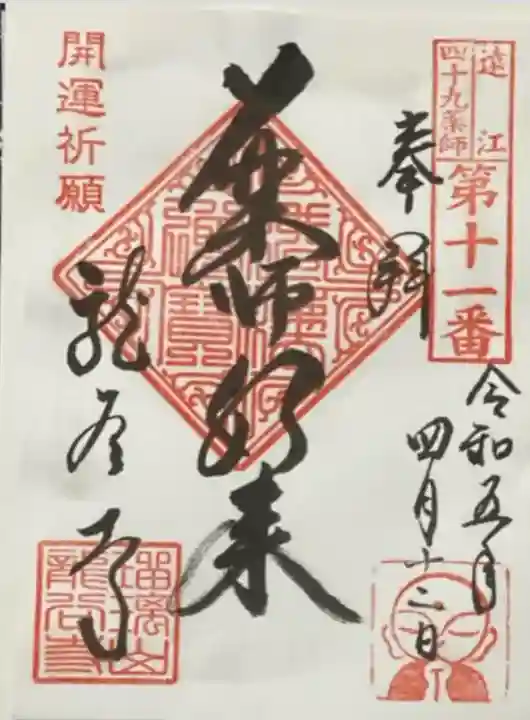 遠江
四十九薬師
第十一番
令和五年
四月十二日
奉拝
薬師如来
開運祈願
龍
寺
瑠璃山